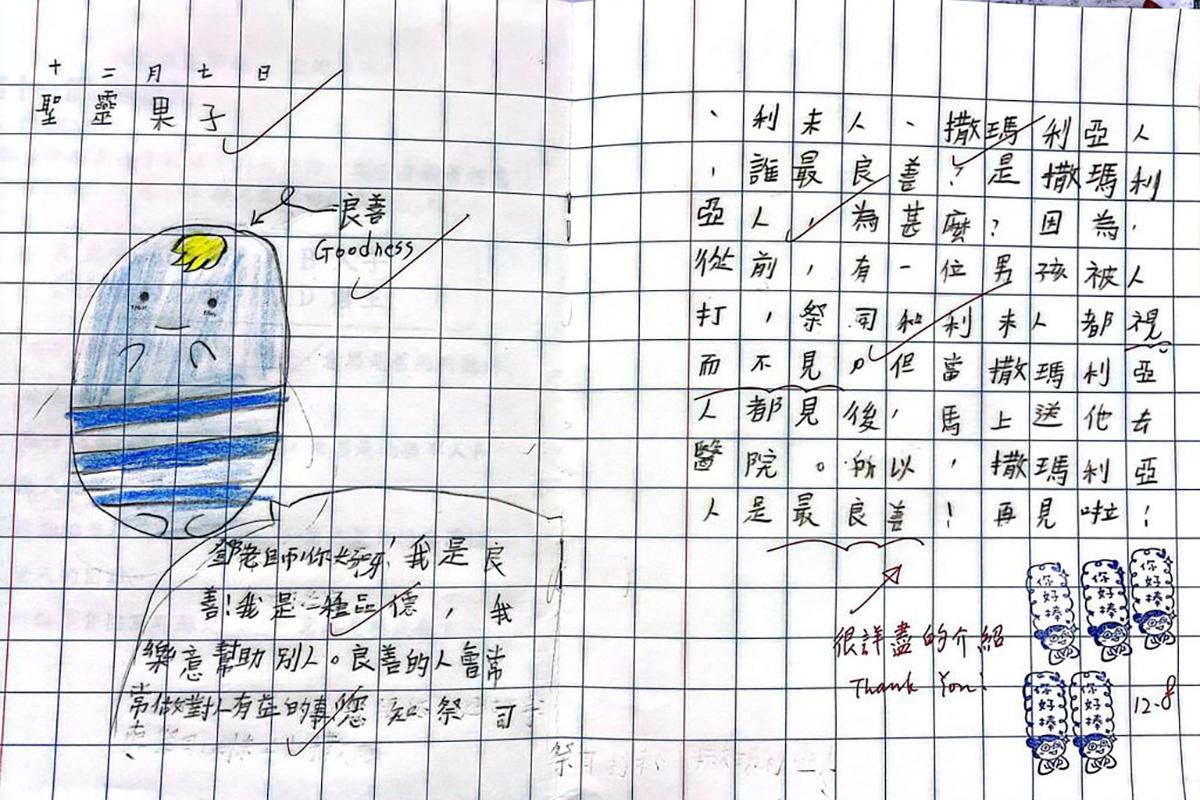 十二月七日
聖靈果子
良善
Goodness
鄧老師你好呀!我是良
善!我是一種品德,我
樂意幫助別人。良善的人會常
常做對人有益的事。您知祭司
、利未人、撒瑪利亞人
,誰最良善?是撒瑪利
亞人,為甚麼?因為,
從前,有一位男孩被人
打,祭司和利未人都視
而不見。但當撒瑪利亞
人都見後,馬上送他去
醫院。所以,撒瑪利亞
人是最良善!再見啦!
很詳盡的介紹
Thank You!
你好捧
你好捧
你好捧
你好捧
你好捧
12.8